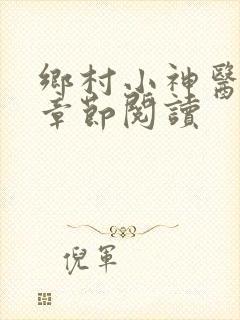 鄉村小神醫
章節閱讀
倪軍